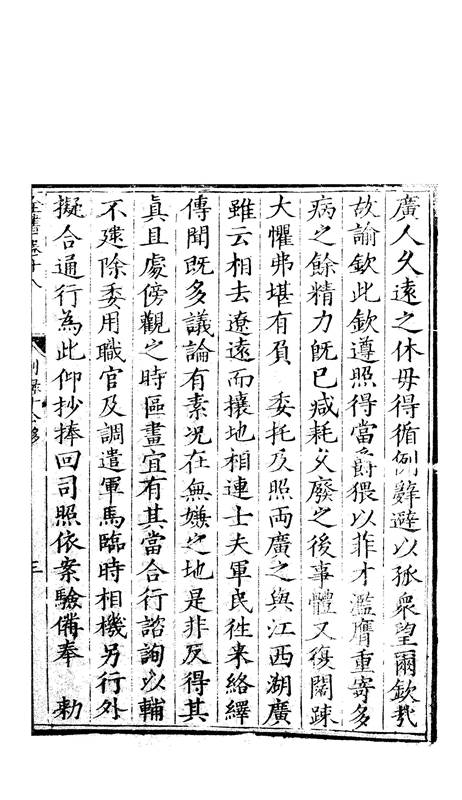 廣人久遠之休毋得循例辭避以孤衆望爾欽哉
故諭欽此欽遵照得當爵猥以菲才濫膺重寄多
病之餘精力既已減耗久廢之後事體又復闊踈
大懼弗堪有負　委托及照兩廣之與江西湖廣
雖云相去遼遠而攘地相連士夫軍民徃来絡繹
傳聞既多議論有素况在無嫌之地是非反得其
真且處傍觀之時區畫宜有其當合行諮詢以輔
不逮除委用職官及調遣軍馬臨時相機另行外
擬合通行為此仰抄捧回司照依案驗備奉　勑
全書卷十八　別録十　公移　三